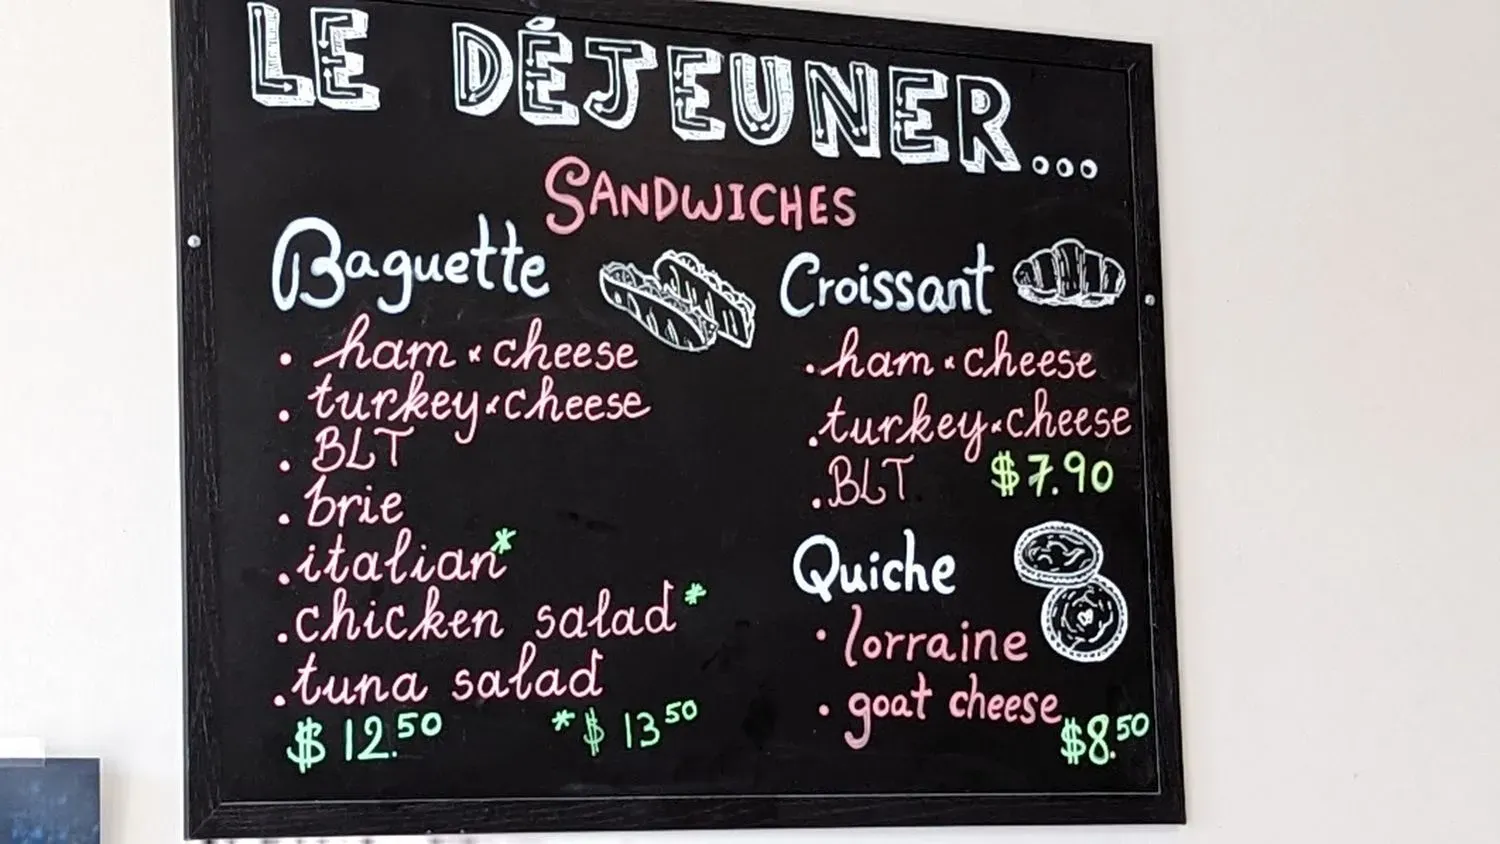 LE DÉJEUNER...
SANDWICHES
Baguette
• ham & cheese
• turkey & cheese
• BLT
• brie
• italian*
• chicken salad*
• tuna salad
$12.50 *$13.50
Croissant
• ham & cheese
• turkey & cheese
• BLT $7.90
Quiche
• lorraine
• goat cheese
$8.50